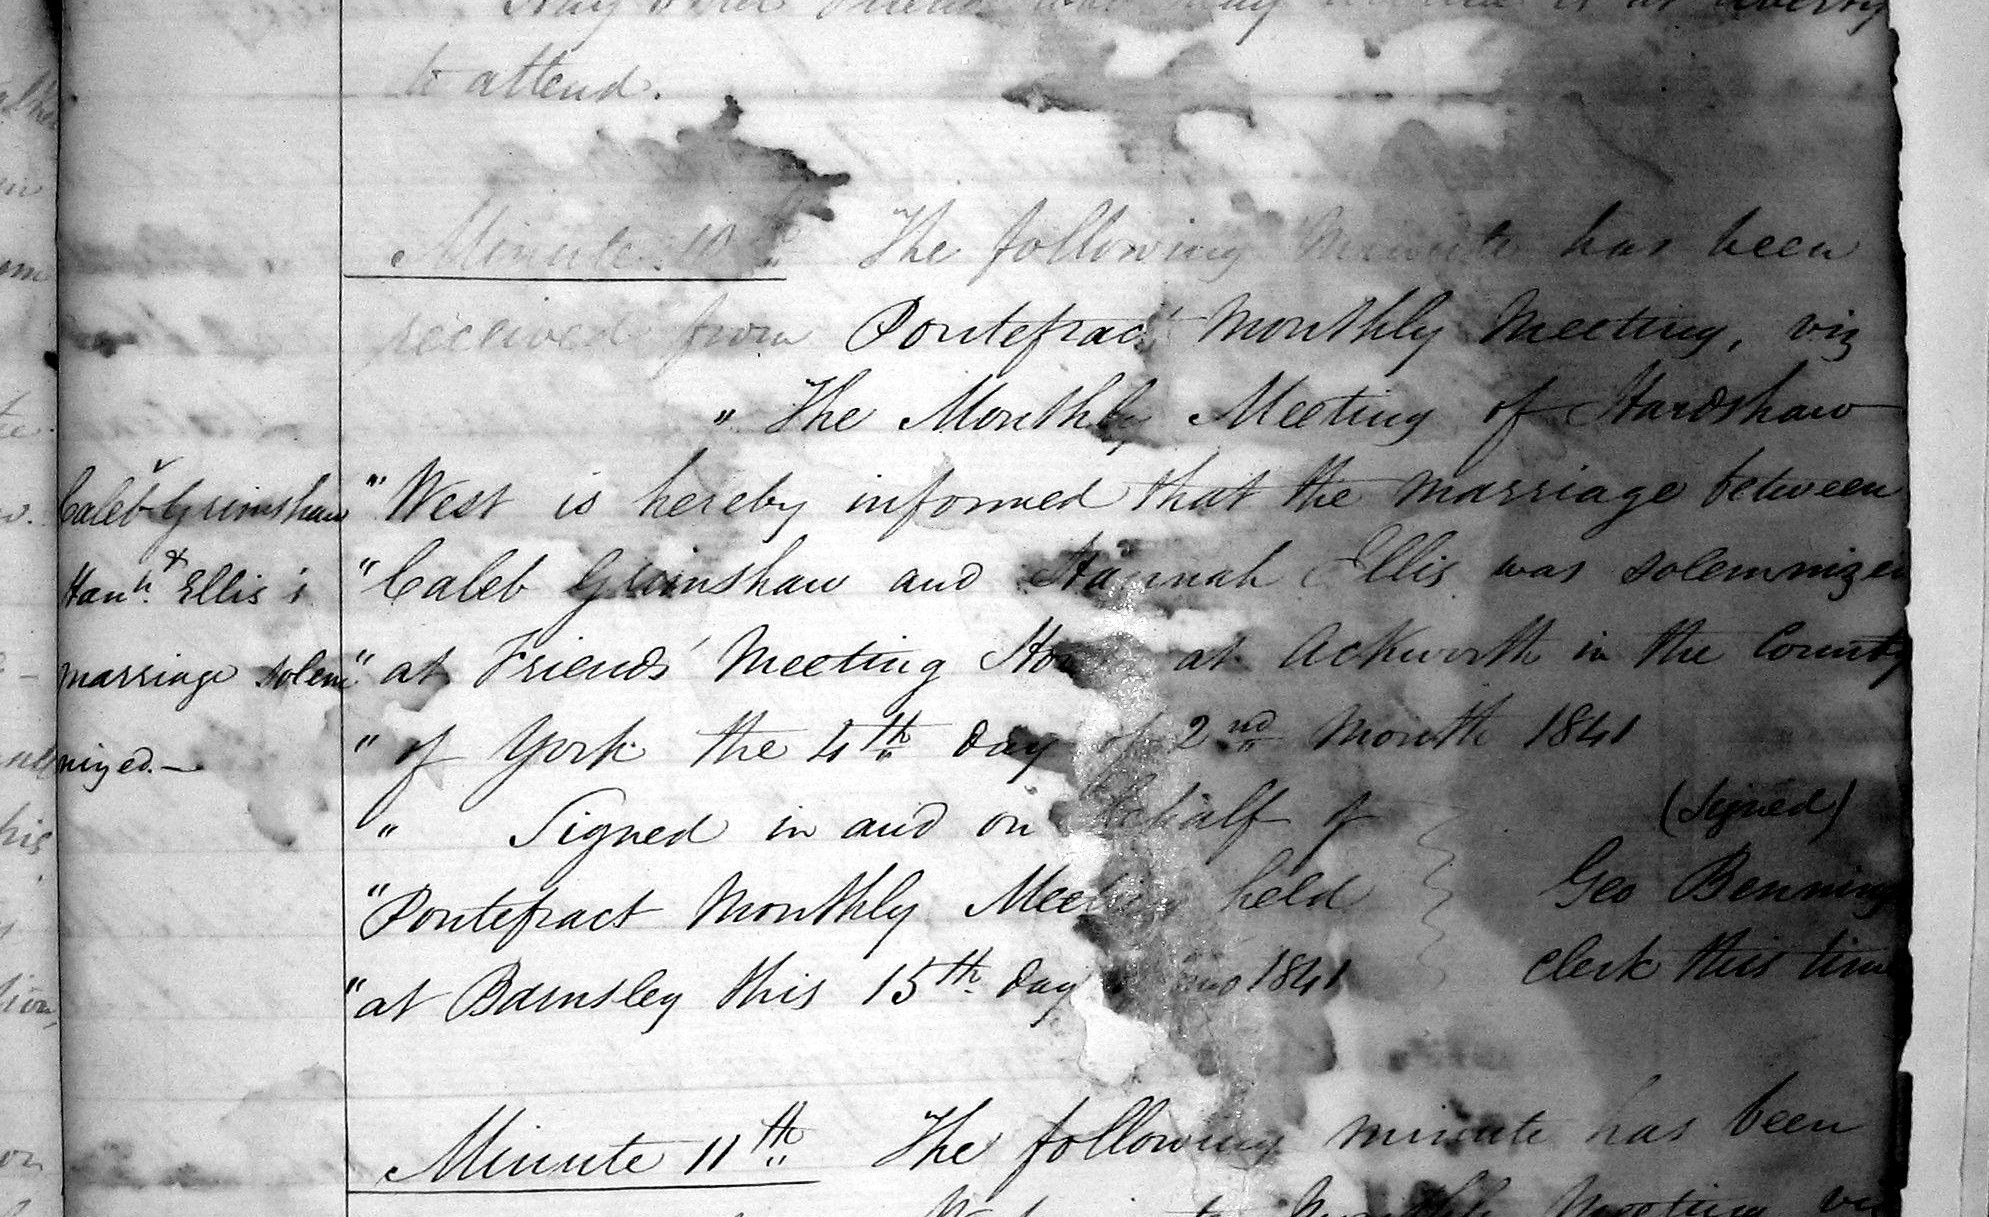 to attend.
Minute 10th The following Minute has been
received from Pontefract Monthly Meeting, viz
" The Monthly Meeting of Hardshaw
Caleb Grimshaw "West is hereby informed that the marriage between
& Hanh. Ellis's "Caleb Grimshaw and Hannah Ellis was solemnized
marriage solem "at Friends' Meeting at Ackworth in the County
nized.— "of York the 4th day of 2nd Month 1841
" Signed in and on behalf of (Signed)
"Pontefract Monthly Meeting held Geo Benning
"at Barnsley this 15th day mo 1841 Clerk this time
Minute 11th The following minute has been
Monthly Meeting